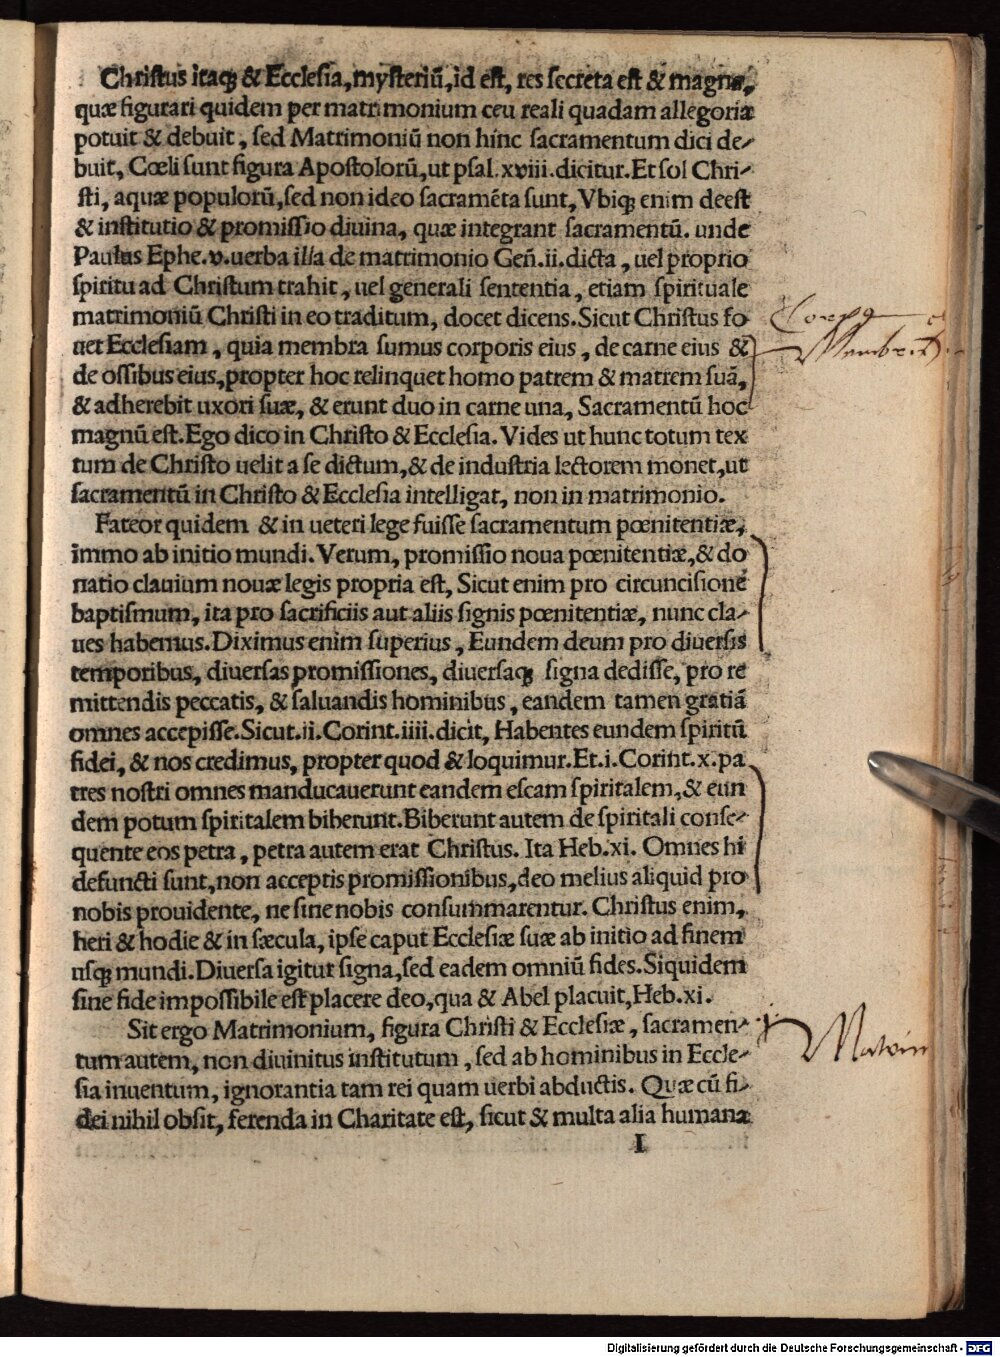 Christus itaqꝫ & Ecclesia, mysteriū, id est, res secreta est & magna,
quæ figurari quidem per matrimonium ceu reali quadam allegoria
potuit & debuit, sed Matrimoniū non hinc sacramentum dici de-
buit, Cœli sunt figura Apostolorū, ut psal. xviii. dicitur. Et sol Chri-
sti, aquæ populorū, sed non ideo sacramēta sunt, Vbiqꝫ enim deest
& institutio & promissio diuina, quæ integrant sacramentū. unde
Paulus Ephe. v. uerba illa de matrimonio Geñ. ii. dicta, uel proprio
spiritu ad Christum trahit, uel generali sententia, etiam spirituale
matrimoniū Christi in eo traditum, docet dicens. Sicut Christus fo
uet Ecclesiam, quia membra sumus corporis eius, de carne eius &
de ossibus eius, propter hoc relinquet homo patrem & matrem suā,
& adherebit uxori suæ, & erunt duo in carne una, Sacramentū hoc
magnū est. Ego dico in Christo & Ecclesia. Vides ut hunc totum tex
tum de Christo uelit a se dictum, & de industria lectorem monet, ut
sacramentū in Christo & Ecclesia intelligat, non in matrimonio.
Fateor quidem & in ueteri lege fuisse sacramentum pœnitentiæ,
immo ab initio mundi. Verum, promissio noua pœnitentiæ, & do
natio clauium nouæ legis propria est, Sicut enim pro circuncisione
baptismum, ita pro sacrificiis aut aliis signis pœnitentiæ, nunc cla-
ues habemus. Diximus enim superius, Eundem deum pro diuersis
temporibus, diuersas promissiones, diuersaqꝫ signa dedisse, pro re
mittendis peccatis, & saluandis hominibus, eandem tamen gratiā
omnes accepisse. Sicut. ii. Corint. iiii. dicit, Habentes eundem spiritū
fidei, & nos credimus, propter quod & loquimur. Et. i. Corint. x. pa
tres nostri omnes manducauerunt eandem escam spiritalem, & eun
dem potum spiritalem biberunt. Biberunt autem de spiritali conse-
quente eos petra, petra autem erat Christus. Ita Heb. xi. Omnes hi
defuncti sunt, non acceptis promissionibus, deo melius aliquid pro
nobis prouidente, ne sine nobis consummarentur. Christus enim,
heri & hodie & in sæcula, ipse caput Ecclesiæ suæ ab initio ad finem
usqꝫ mundi. Diuersa igitur signa, sed eadem omniū fides. Siquidem
sine fide impossibile est placere deo, qua & Abel placuit, Heb. xi.
Sit ergo Matrimonium, figura Christi & Ecclesiæ, sacramen-
tum autem, non diuinitus institutum, sed ab hominibus in Eccle-
sia inuentum, ignorantia tam rei quam uerbi abductis. Quæ cū fi-
dei nihil obsit, ferenda in Charitate est, sicut & multa alia humana
I
Matrim
Digitalisierung gefördert durch die Deutsche Forschungsgemeinschaft - DFG